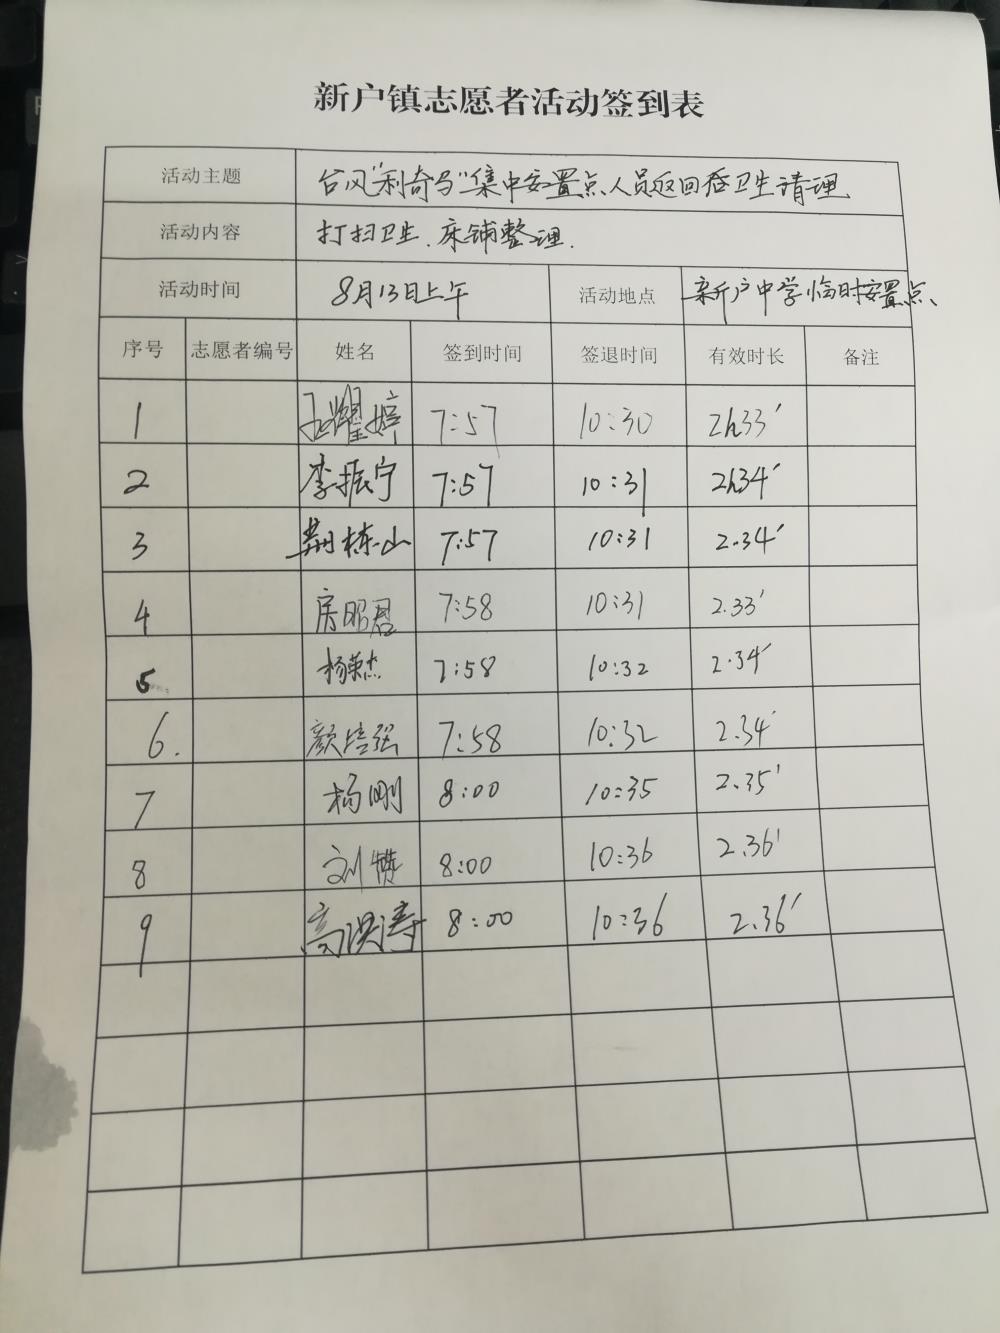 新户镇志愿者活动签到表
活动主题 台风“利奇马”集中安置点人员返回后卫生清理
活动内容 打扫卫生、床铺整理.
活动时间 8月13日上午 活动地点 新户中学临时安置点、
序号 志愿者编号 姓名 签到时间 签退时间 有效时长 备注
1 7:57 10:30 2h33′
2 李振宁 7:57 10:31 2h34′
3 荆栋山 7:57 10:31 2.34′
4 房昭君 7:58 10:31 2.33′
5 杨荣杰 7:58 10:32 2.34′
6. 颜培强 7:58 10:32 2.34′
7 杨刚 8:00 10:35 2.35′
8 刘赞 8:00 10:36 2.36′
9 高洪涛 8:00 10:36 2.36′